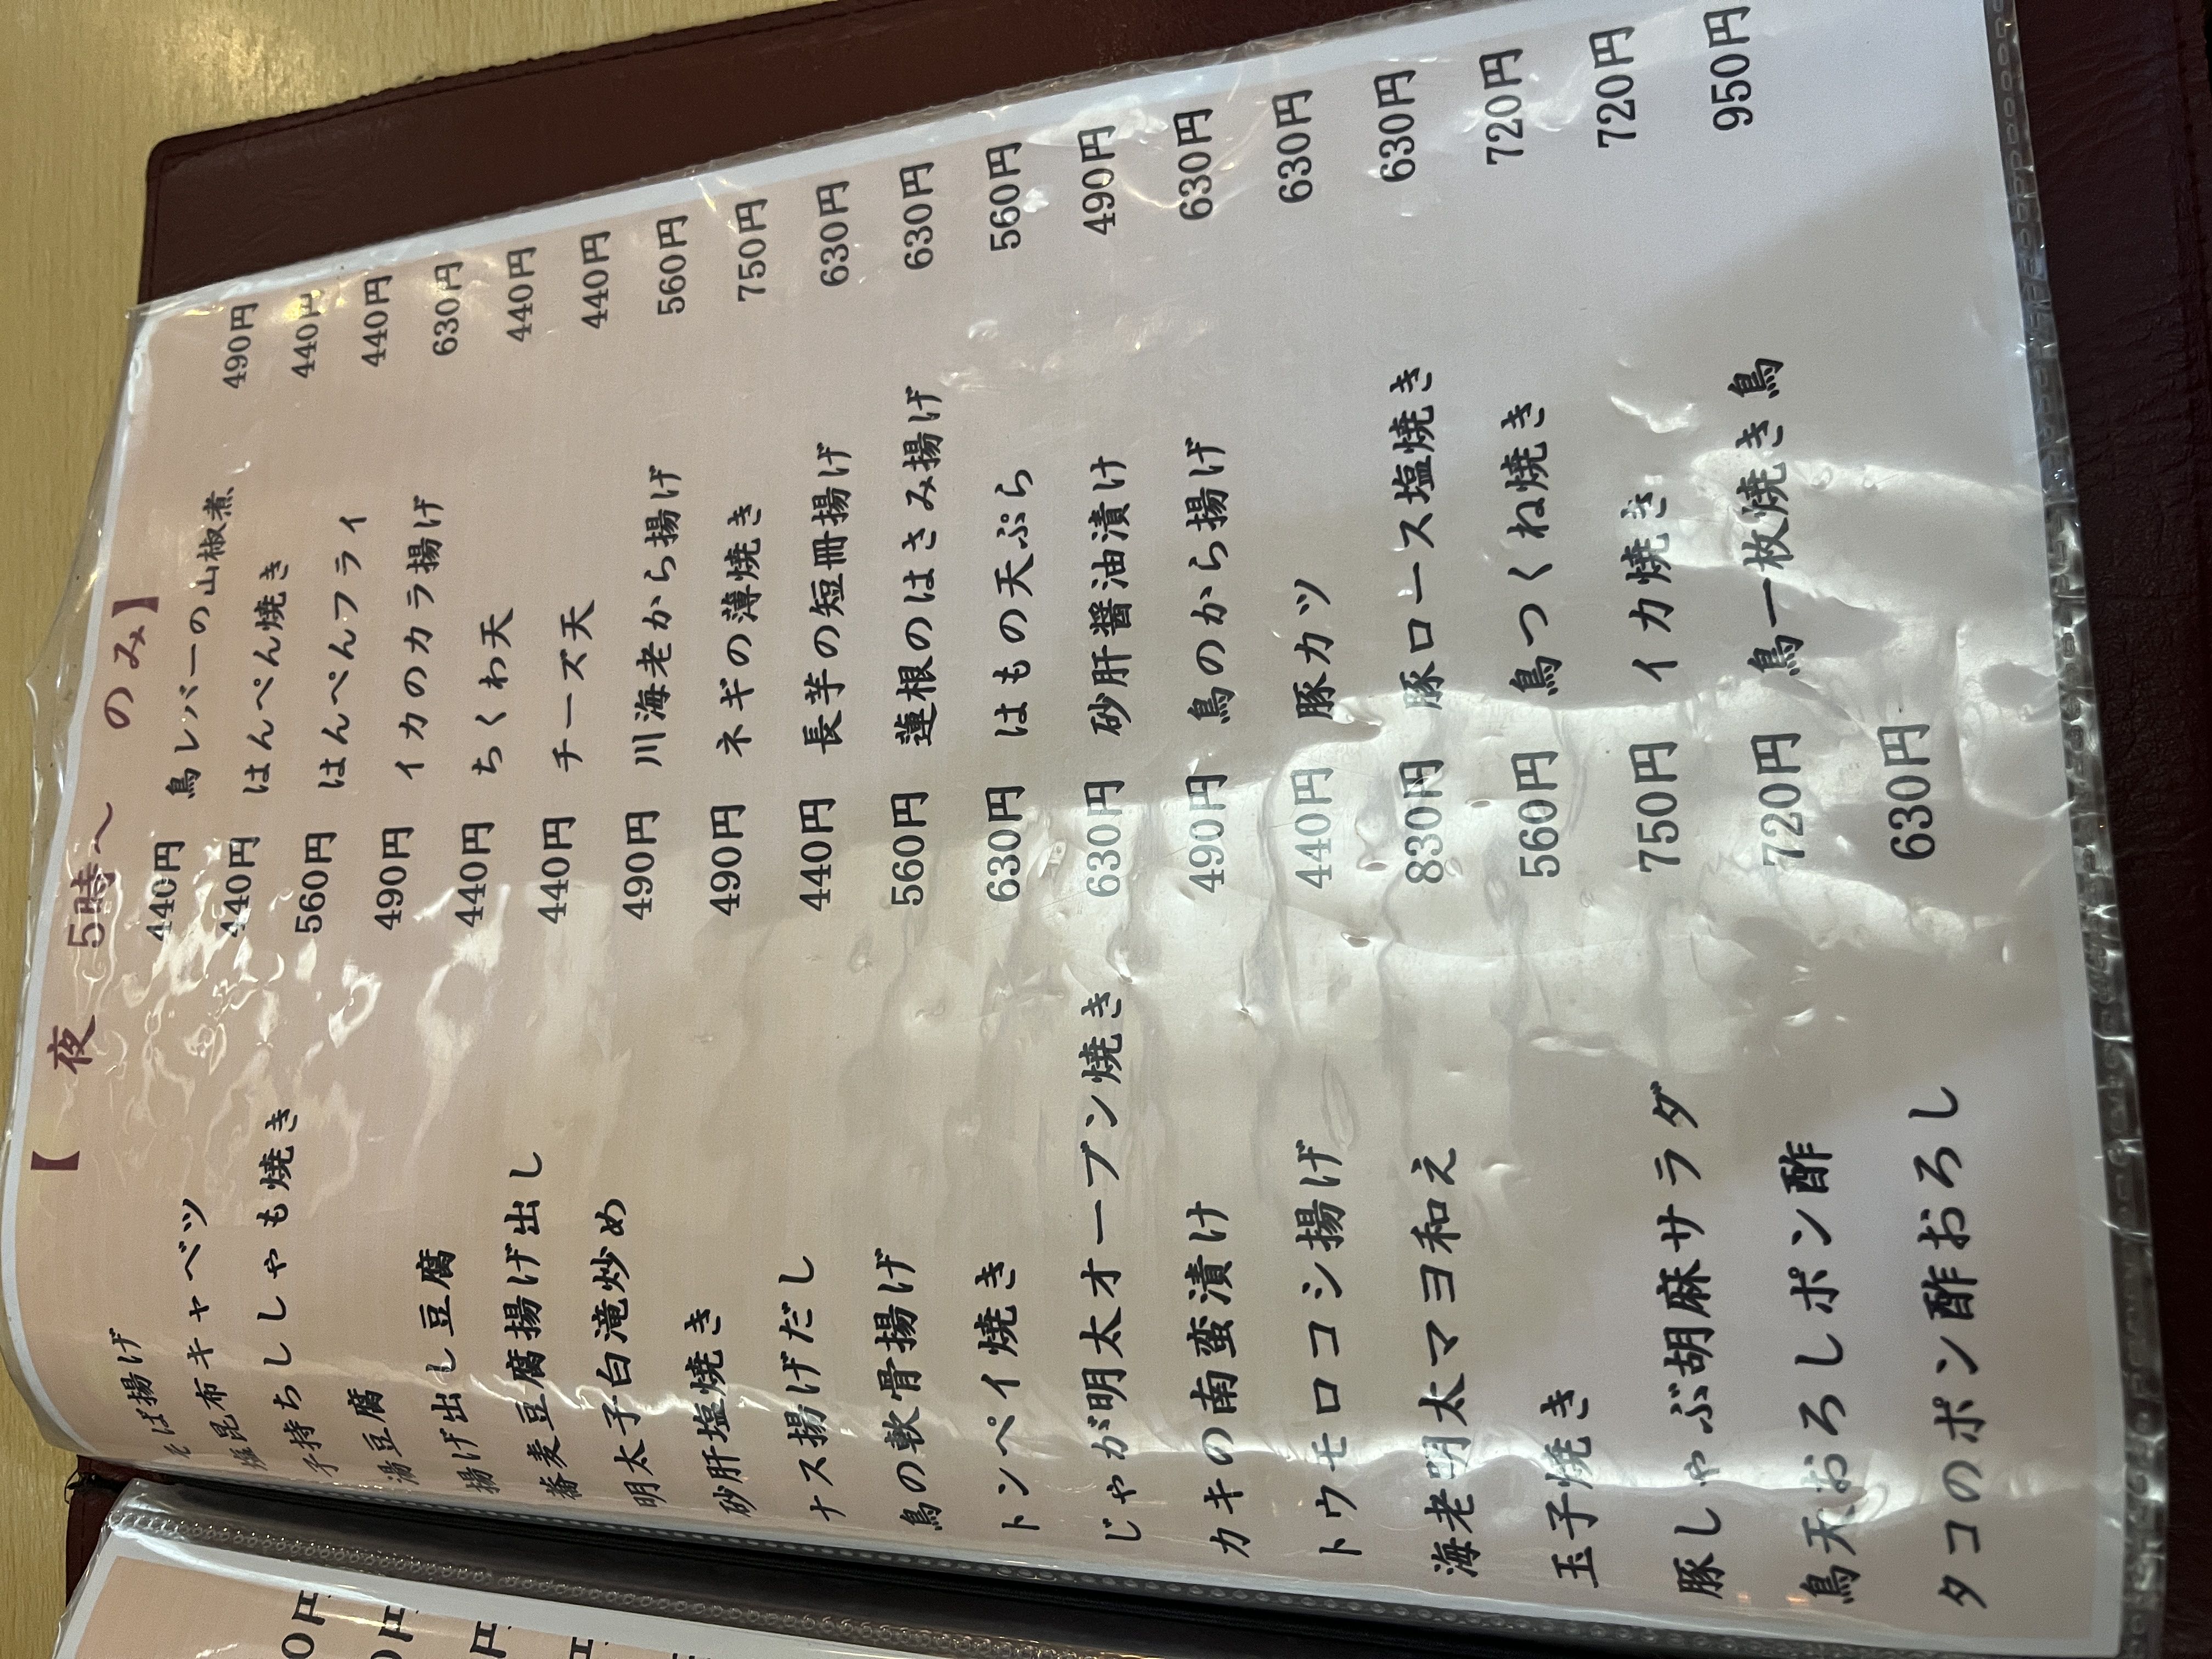 【 夜 5時～ のみ】
そば揚げ 440円 鳥レバーの山椒煮 490円
塩昆布キャベツ 440円 はんぺん焼き 440円
子持ちししゃも焼き 560円 はんぺんフライ 440円
湯豆腐 490円 イカのカラ揚げ 630円
揚げ出し豆腐 440円 ちくわ天 440円
蕎麦豆腐揚げ出し 440円 チーズ天 440円
明太子白滝炒め 490円 川海老から揚げ 560円
砂肝塩焼き 490円 ネギの薄焼き 750円
ナス揚げだし 440円 長芋の短冊揚げ 630円
鳥の軟骨揚げ 560円 蓮根のはさみ揚げ 630円
トンペイ焼き 630円 はもの天ぷら 560円
じゃが明太オーブン焼き 630円 砂肝醤油漬け 490円
カキの南蛮漬け 490円 鳥のから揚げ 630円
トウモロコシ揚げ 440円 豚カツ 630円
海老明太マヨ和え 830円 豚ロース塩焼き 630円
玉子焼き 560円 鳥つくね焼き 720円
豚しゃぶ胡麻サラダ 750円 イカ焼き 720円
鳥天おろしポン酢 720円 鳥一枚焼き 鳥 950円
タコのポン酢おろし 630円